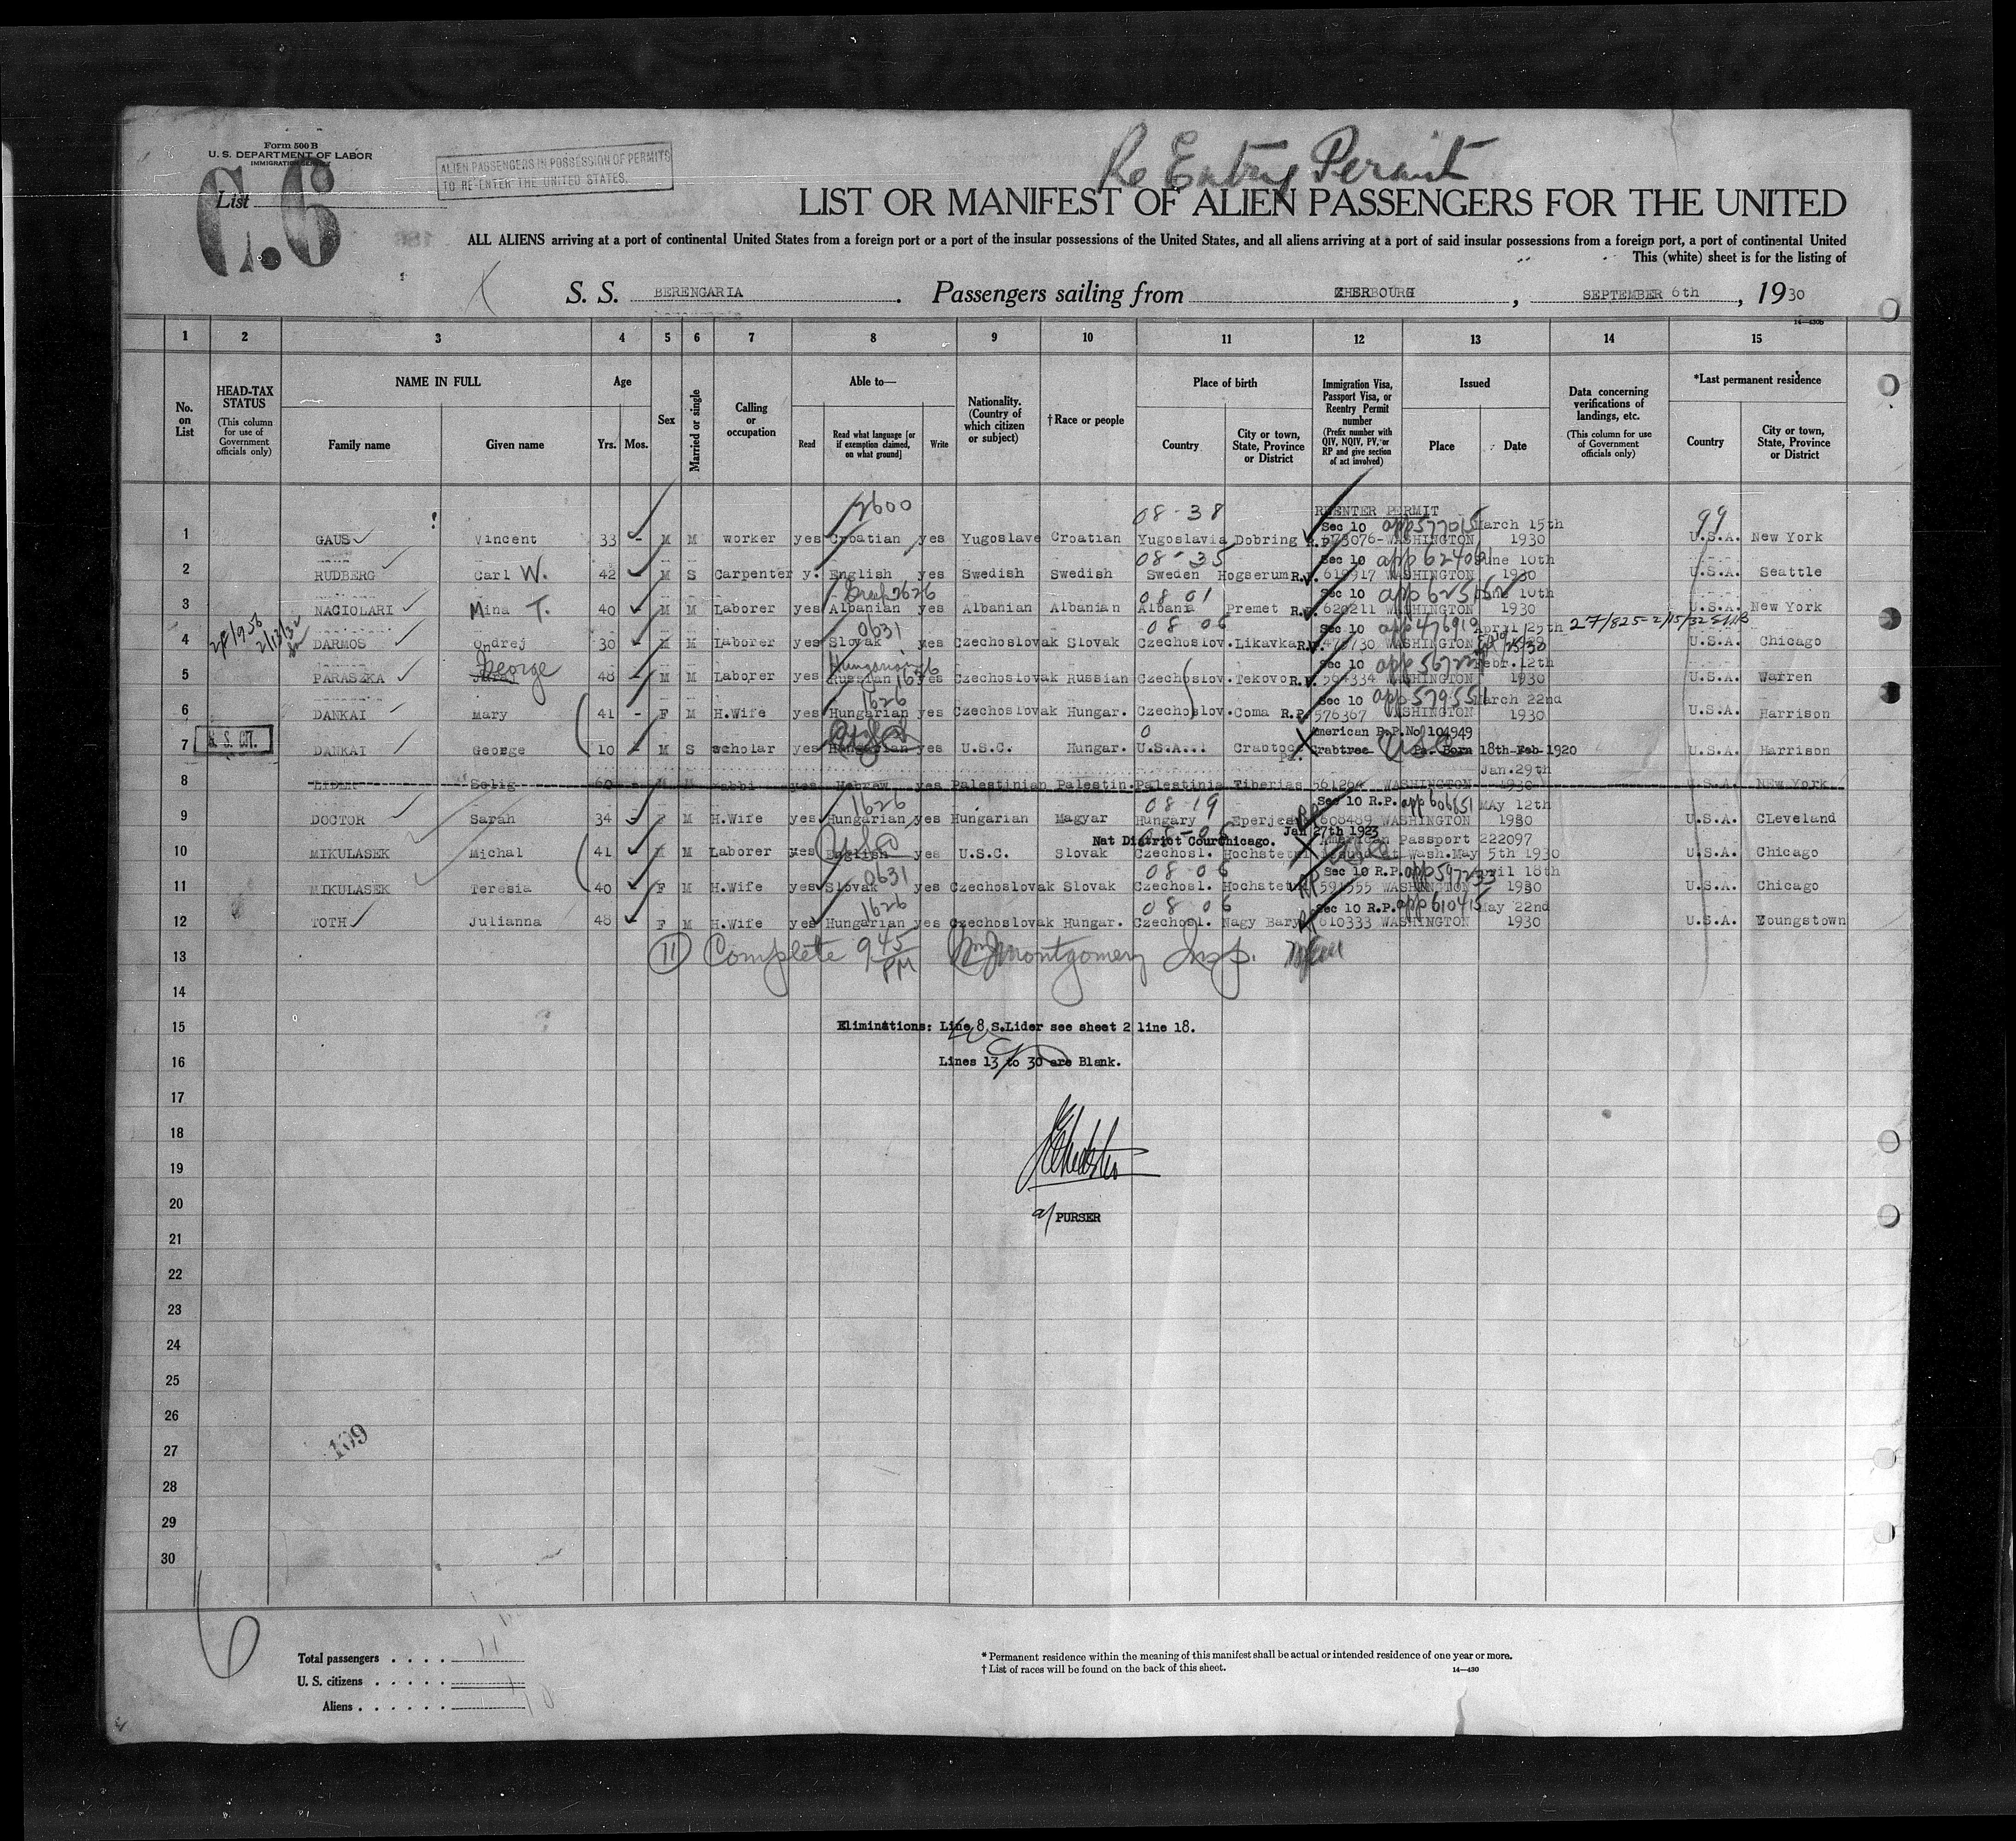 Form 500 B
U. S. DEPARTMENT OF LABOR
IMMIGRATION SERVICE
List
C.6
ALIEN PASSENGERS IN POSSESSION OF PERMITS
TO RE-ENTER THE UNITED STATES.
Re Entry Permit
LIST OR MANIFEST OF ALIEN PASSENGERS FOR THE UNITED
ALL ALIENS arriving at a port of continental United States from a foreign port or a port of the insular possessions of the United States, and all aliens arriving at a port of said insular possessions from a foreign port, a port of continental United
This (white) sheet is for the listing of
S. S. BERENGARIA. Passengers sailing from CHERBOURG, SEPTEMBER 6th, 1930
1 2 3 4 5 6 7 8 9 10 11 12 13 14 15
No. on List
HEAD-TAX STATUS
(This column for use of Government officials only)
NAME IN FULL
Family name Given name
Age
Yrs. Mos.
Sex
Married or single
Calling or occupation
Able to—
Read Read what language [or if exemption claimed, on what ground] Write
Nationality. (Country of which citizen or subject)
†Race or people
Place of birth
Country City or town, State, Province or District
Immigration Visa, Passport Visa, or Reentry Permit number
(Prefix number with QIV, NQIV, PV, or RP and give section of act involved)
Issued
Place Date
Data concerning verifications of landings, etc.
(This column for use of Government officials only)
*Last permanent residence
Country City or town, State, Province or District
2600 08-38 REENTER PERMIT 99
Sec 10 app577015 March 15th
1 GAUS Vincent 33 - M M worker yes Croatian yes Yugoslave Croatian Yugoslavia Dobring R.P. 573076-WASHINGTON 1930 U.S.A. New York
08-35 Sec 10 June 10th
2 RUDBERG Carl W. 42 M S Carpenter y. English yes Swedish Swedish Sweden Hogserum R.P. 619917 WASHINGTON 1930 U.S.A. Seattle
2626 08 01 Sec 10 June 10th
3 NACIOLARI Mina T. 40 M M Laborer yes Albanian yes Albanian Albanian Albania Premet R.P. 620211 WASHINGTON 1930 U.S.A. New York
0631 08 06 Sec 10 app476919 April 25th 27/825-2/15/32
4 DARMOS Ondrej 30 M M Laborer yes Slovak yes Czechoslovak Slovak Czechoslov. Likavka R.P. WASHINGTON U.S.A. Chicago
George Hungarian Sec 10 Febr. 12th
5 PARASKA 48 M M Laborer yes Russian yes Czechoslovak Russian Czechoslov. Tekovo R.P. 594334 WASHINGTON 1930 U.S.A. Warren
1626 Sec 10 app579551 March 22nd
6 DANKAI Mary 41 - F M H.Wife yes Hungarian yes Czechoslovak Hungar. Czechoslov. Coma R.P. 576367 WASHINGTON 1930 U.S.A. Harrison
U. S. CIT. English 0 American P.P.No 104949
7 DANKAI George 10 M S scholar yes Hungarian yes U.S.C. Hungar. U.S.A. Crabtock Pa. Crabtree Pa. Born 18th Feb 1920 U.S.A. Harrison
Jan.29th
8 LIDER Selig 60 M M Rabbi yes Hebrew yes Palestinian Palestin. Palestinia Tiberias 561264 WASHINGTON 1930 U.S.A. NEW York
1626 08-19 Sec 10 R.P. app606851 MAy 12th
9 DOCTOR Sarah 34 F M H.Wife yes Hungarian yes Hungarian Magyar Hungary Eperjes 608489 WASHINGTON 1930 U.S.A. CLeveland
Nat District Cour Chicago. Jan 27th 1923 American Passport 222097
10 MIKULASEK Michal 41 M M Laborer yes English yes U.S.C. Slovak Czechosl. Hochstet Wash.May 5th 1930 U.S.A. Chicago
0631 08-06 Sec 10 R.P. app597233 April 18th
11 MIKULASEK Teresia 40 F M H.Wife yes Slovak yes Czechoslovak Slovak Czechosl. Hochstet 591555 WASHINGTON 1930 U.S.A. Chicago
1626 08 06 Sec 10 R.P. app610415 May 22nd
12 TOTH Julianna 48 F M H.Wife yes Hungarian yes Czechoslovak Hungar. Czechosl. Nagy Bary 610333 WASHINGTON 1930 U.S.A. Youngstown
13 11 Complete 9 45 PM Wm J Montgomery Insp.
14
15 Eliminations: Line 8 S.Lider see sheet 2 line 18.
16 Lines 13 to 30 are Blank.
17
18
19
20 PURSER
21
22
23
24
25
26
27 109
28
29
30
6
Total passengers . . . . 11
U. S. citizens . . . . . 1
Aliens . . . . . . 10
* Permanent residence within the meaning of this manifest shall be actual or intended residence of one year or more.
† List of races will be found on the back of this sheet. 14—430